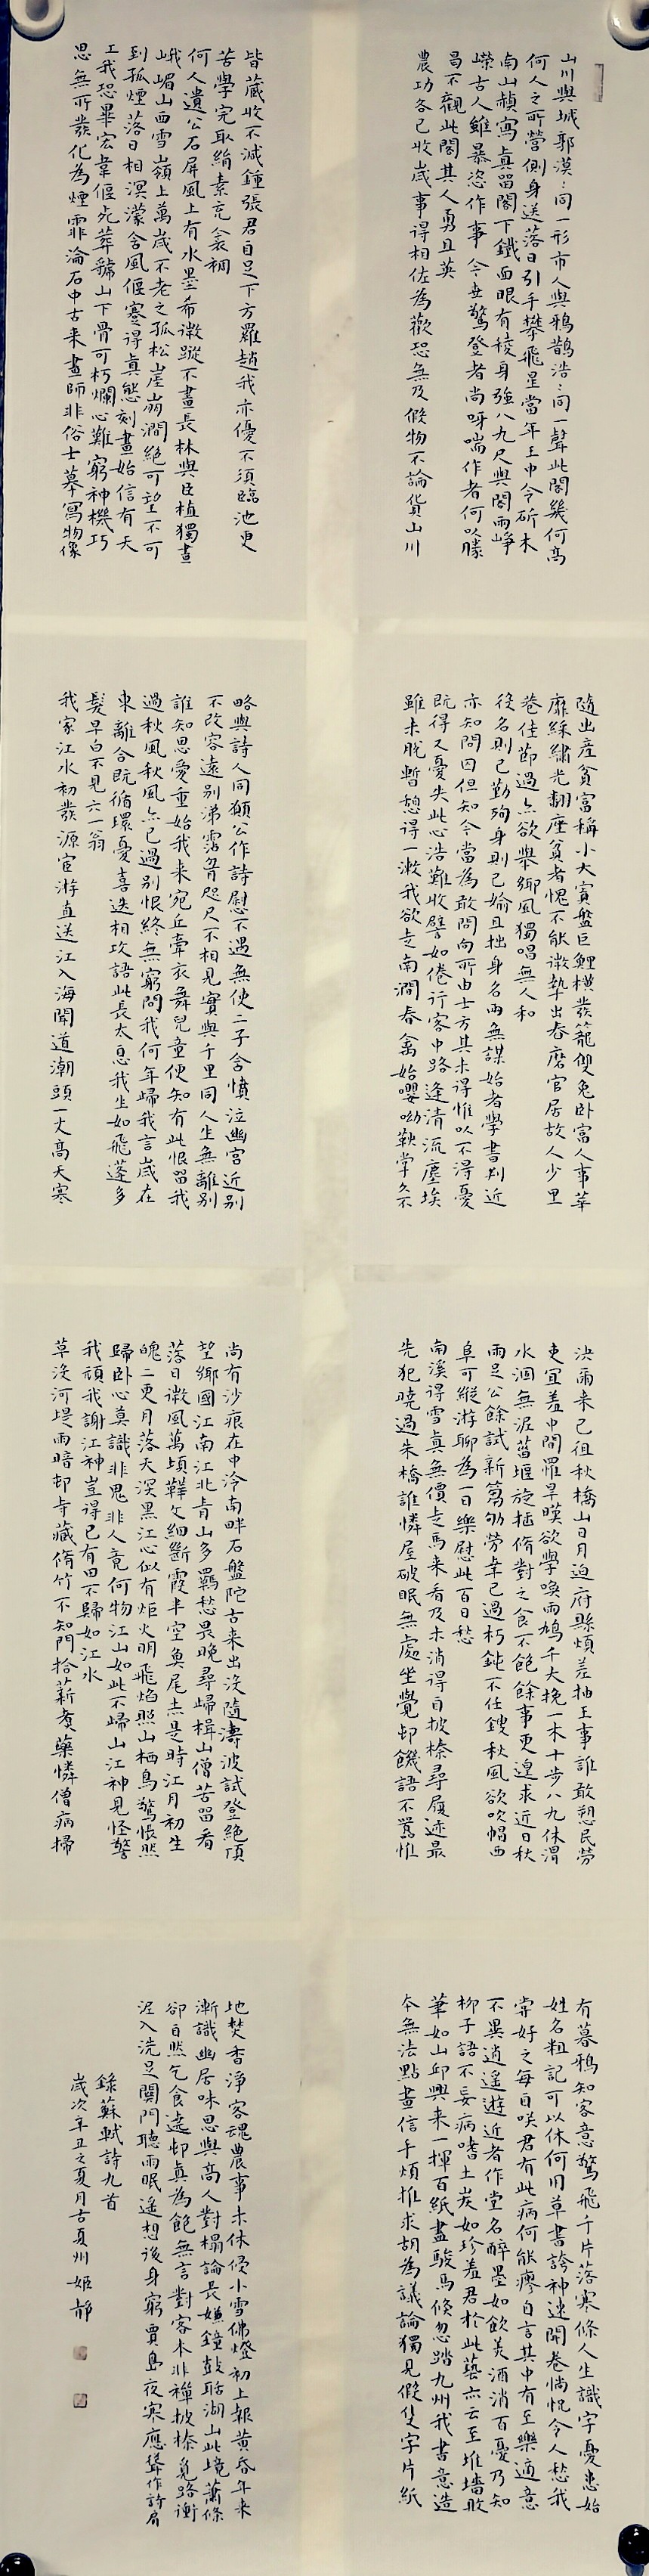 山川與城郭漠〻同一形市人與鴉鵲浩〻同一聲此閣幾何高
何人之所營側身送落日引手攀飛星當年王中令斫木
南山赬寫真留閣下鐵面眼有稜身強八九尺與閣兩崢
嶸古人雖暴恣作事今世驚登者尚呀喘作者何以勝
曷不觀此閣其人勇且英
農功各已收歲事得相佐為歡恐無及假物不論貨山川
隨出產貧富稱小大寘盤巨鯉橫發籠雙兔卧富人事華
靡綵繡光翻座貧者愧不能微摯出舂磨官居故人少里
巷佳節過亦欲舉鄉風獨唱無人和
後名則已勤殉身則已媮且拙身名兩無謀始者學書判近
亦知問因但知今當為敢問向所由士方其未得惟以不得憂
既得又憂失此心浩難收譬如倦行客中路逢清流塵埃
雖未脫暫憩得一漱我欲走南澗春禽始嚶呦鞅掌久不
決爾來已徂秋橋山日月迫府縣煩差抽王事誰敢愬民勞
吏宜羞中間罹旱暵欲學喚雨鳩千夫挽一木十步八九休渭
水涸無泥菑堰旋插脩對之食不飽餘事更遑求近日秋
雨足公餘試新篘劬勞幸已過朽鈍不任鎪秋風欲吹帽西
阜可縱游聊為一日樂慰此百日愁
南溪得雪真無價走馬來看及未消得自披榛尋履迹最
先犯曉過朱橋誰憐屋破眠無處坐覺邨饑語不囂惟
有暮鴉知客意驚飛千片落寒條人生識字憂患始
姓名粗記可以休何用草書誇神速開卷惝怳令人愁我
嘗好之每自咲君有此病何能瘳自言其中有至樂適意
不異逍遙遊近者作堂名醉墨如飲美酒消百憂乃知
柳子語不妄病嗜土炭如珍羞君於此藝亦云至堆墻敗
筆如山邱興來一揮百紙盡駿馬倏忽踏九州我書意造
本無法點畫信手煩推求胡為議論獨見假隻字片紙
皆藏收不減鍾張君自足下方羅趙我亦優不須臨池更
苦學完取絹素充衾裯
何人遺公石屏風上有水墨希微蹤不畫長林與巨植獨畫
峨嵋山西雪嶺上萬歲不老之孤松崖崩澗絕可望不可
到孤煙落日相溟濛含風偃蹇得真態刻畫始信有天
工我恐畢宏韋偃死葬虢山下骨可朽爛心難窮神機巧
思無所發化為煙霏淪石中古來畫師非俗士摹寫物像
略與詩人同願公作詩慰不遇無使二子含憤泣幽宮近別
不改容遠別涕霑胷咫尺不相見實與千里同人生無離別
誰知恩愛重始我來宛丘牽衣舞兒童便知有此恨留我
過秋風秋風亦已過別恨終無窮問我何年歸我言歲在
東離合既循環憂喜迭相攻語此長太息我生如飛蓬多
髮早白不見六一翁
我家江水初發源宦游直送江入海聞道潮頭一丈高天寒
尚有沙痕在中泠南畔石盤陀古來出沒隨濤波試登絕頂
望鄉國江南江北青山多羈愁畏晚尋歸楫山僧苦留看
落日微風萬頃鞾文細斷霞半空魚尾赤是時江月初生
魄二更月落天深黑江心似有炬火明飛焰照山栖鳥驚悵然
歸卧心莫識非鬼非人竟何物江山如此不歸山江神見怪警
我頑我謝江神豈得已有田不歸如江水
草沒河堤雨暗邨寺藏脩竹不知門拾薪煮藥憐僧病掃
地焚香淨客魂農事未休侵小雪佛燈初上報黃昏年來
漸識幽居味思與高人對榻論長嫌鐘鼓聒湖山此境蕭條
卻自然乞食遶邨真為飽無言對客本非禪披榛覓路衝
泥入洗足關門聽雨眠遥想後身窮賈島夜寒應聳作詩肩
錄蘇軾詩九首
歲次辛丑之夏月古夏州姬靜